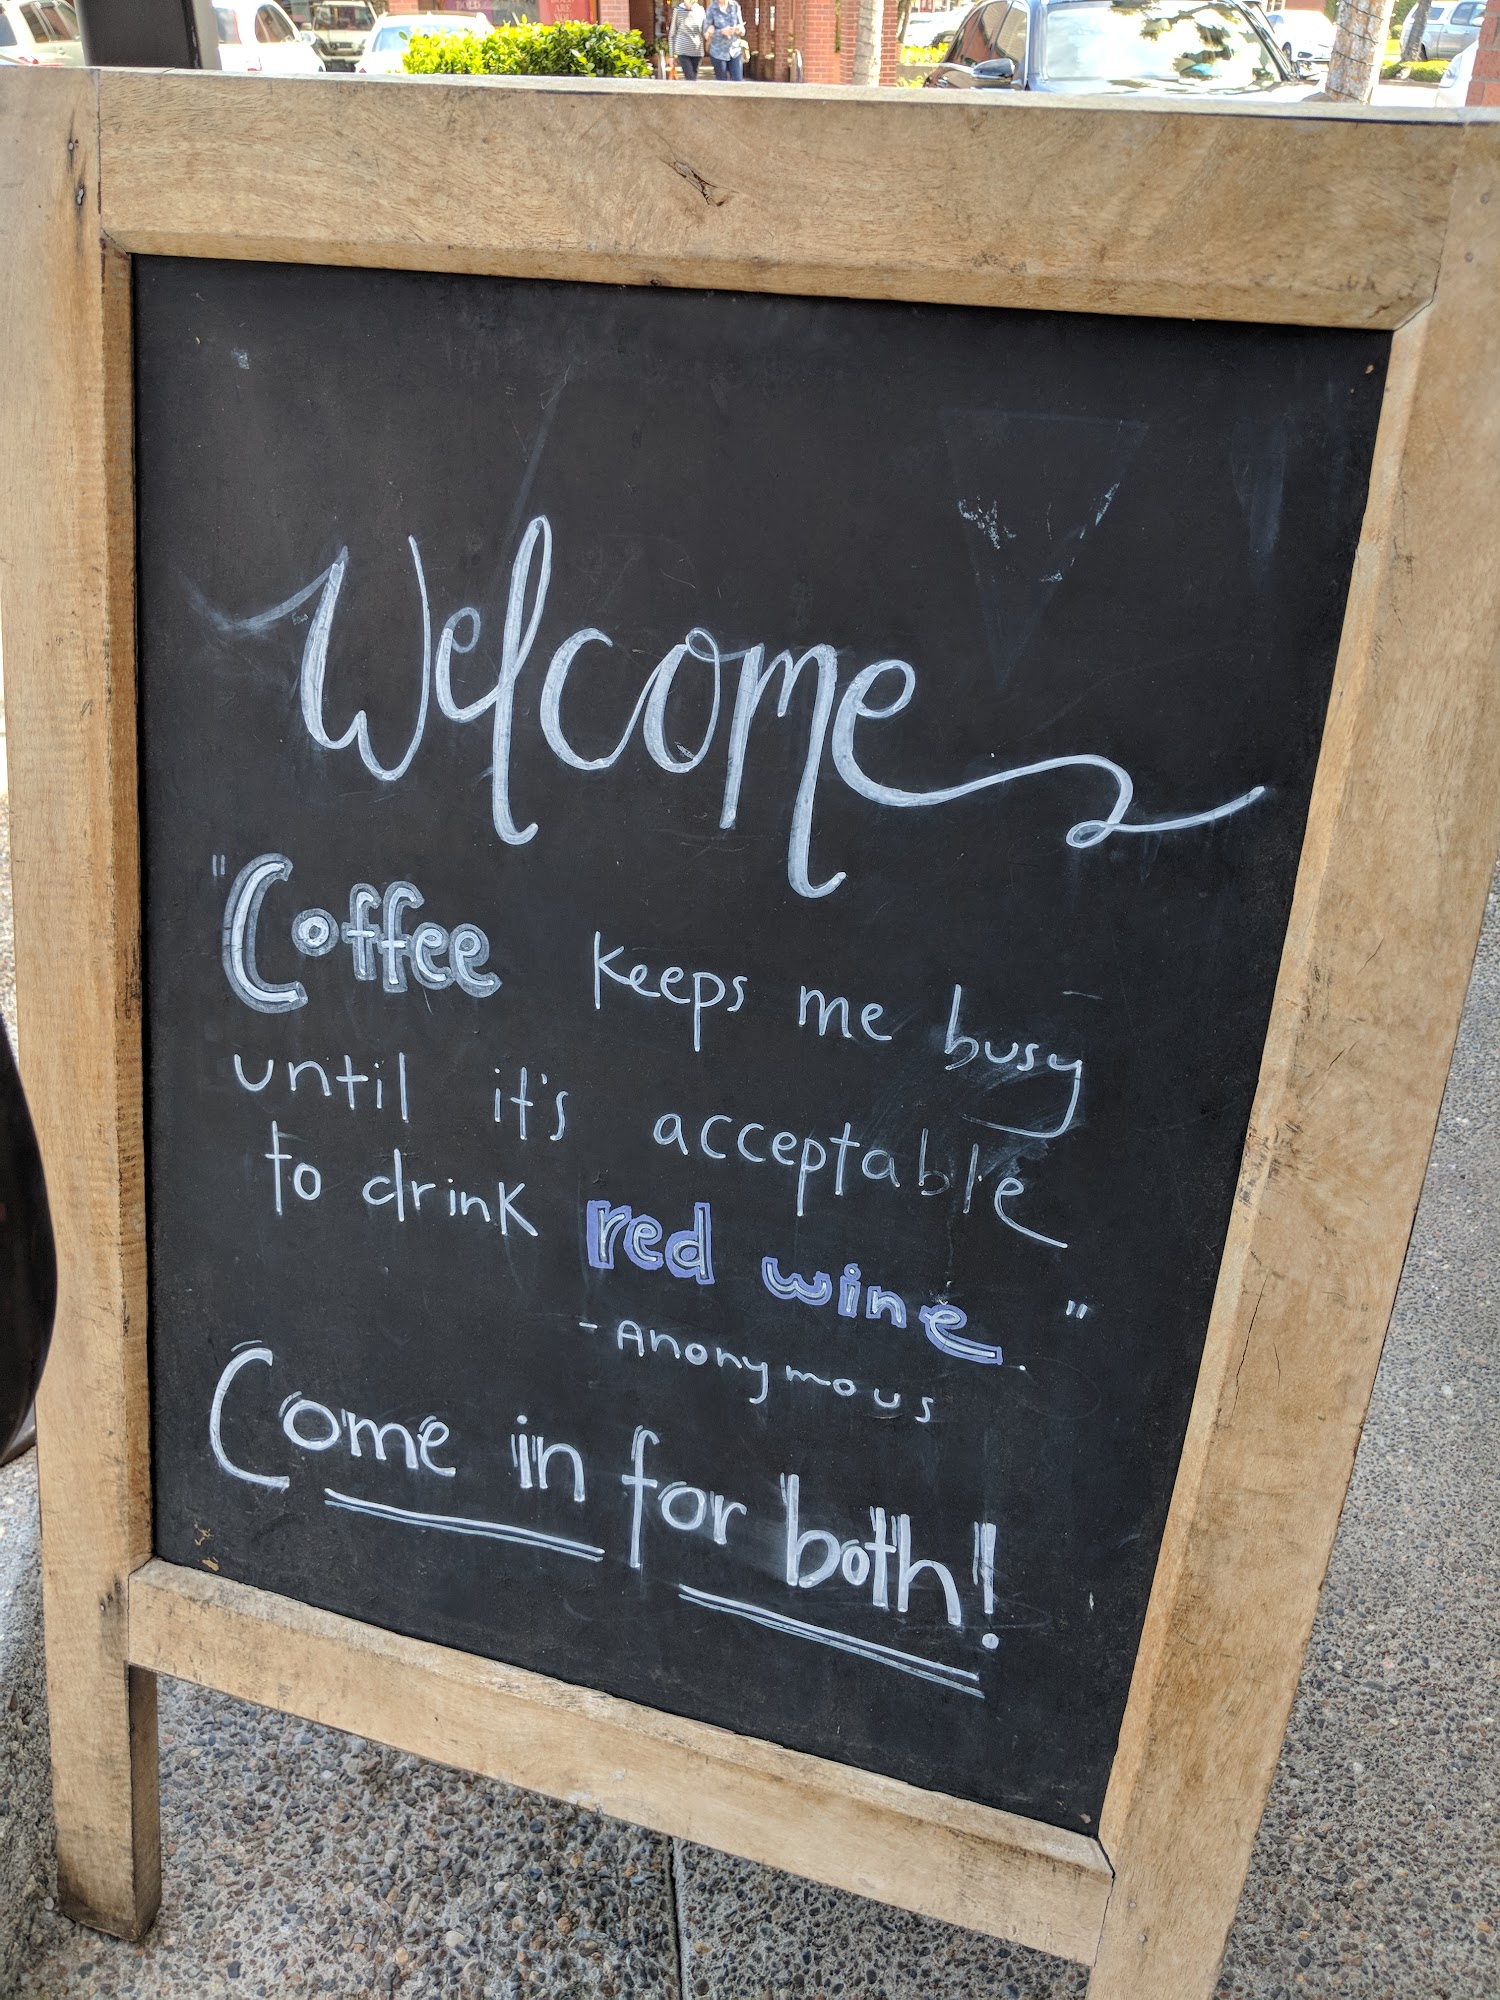 Welcome
"Coffee keeps me busy
until it's acceptable
to drink red wine"
- Anonymous
Come in for both!